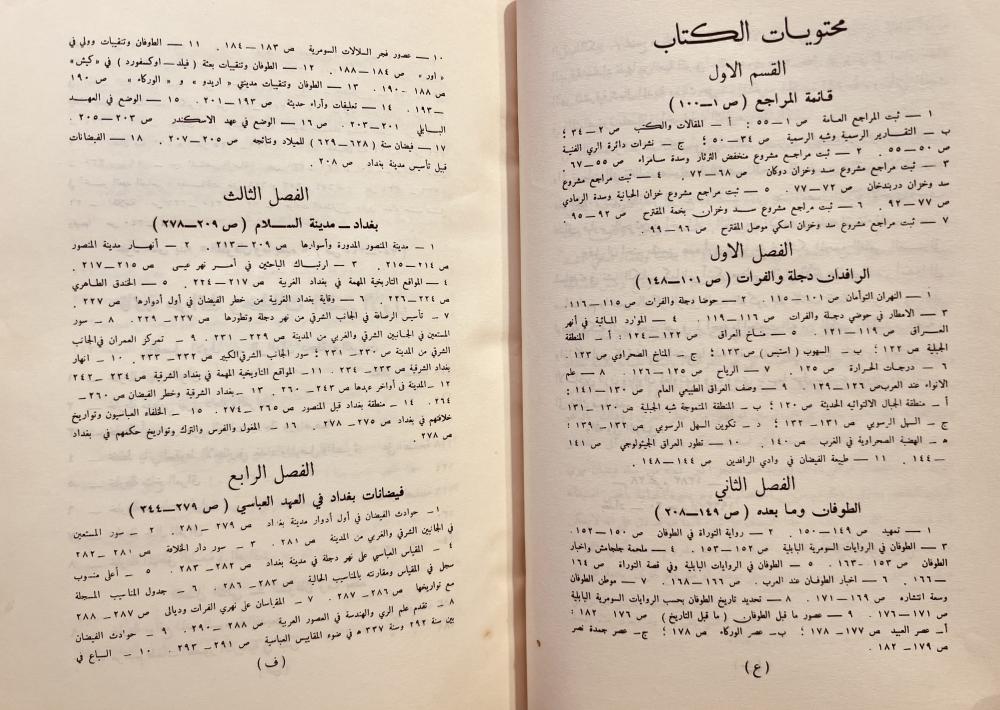 محتويات الكتاب
القسم الاول
قائمة المراجع ( ص ١—١٠٠ )
١ — ثبت المراجع العامة ص ١—٥٥ : أ — المقالات والكتب ص ٢—٣٤ ؛
ب — التقارير الرسمية وشبه الرسمية ص ٣٤—٥٠ ؛ ج — نشرات دائرة الري الفنية
ص ٥٠—٥٥ . ٢ — ثبت مراجع مشروع منخفض الثرثار وسدة سامراء ص ٥٥—٦٧ .
٣ — ثبت مراجع مشروع سد وخزان دوكان ص ٦٨—٧٢ . ٤ — ثبت مراجع مشروع
سد وخزان دربندخان ص ٧٢—٧٧ . ٥ — ثبت مراجع مشروع خزان الحبانية وسدة الرمادي
ص ٧٧—٩٢ . ٦ — ثبت مراجع مشروع سد وخزان بخمة المقترح ص ٩٢—٩٥ .
٧ — ثبت مراجع مشروع سد وخزان اسكي موصل المقترح ص ٩٦—٩٩ .
الفصل الاول
الرافدان دجلة والفرات ( ص ١٠١—١٤٨ )
١ — النهران التوأمان ص ١٠١—١١٥ . ٢ — حوضا دجلة والفرات ص ١١٥—١١٦ .
٣ — الامطار في حوضي دجلة والفرات ص ١١٦—١١٩ . ٤ — الموارد المائية في أنهر
العراق ص ١١٩—١٢١ . ٥ — مناخ العراق ص ١٢٢—١٢٤ : أ — المنطقة
الجبلية ص ١٢٢ ؛ ب — السهوب ( استبس ) ص ١٢٣ ؛ ج — المناخ الصحراوي ص ١٢٣ .
٦ — درجات الحرارة ص ١٢٥ . ٧ — الرياح ص ١٢٥—١٢٦ . ٨ — علم
الانواء عند العرب ص ١٢٦—١٢٩ . ٩ — وصف العراق الطبيعي العام ص ١٣٠—١٤١ :
أ — منطقة الجبال الالتوائيه الحديثة ص ١٣٠ ؛ ب — المنطقة المتموجة شبه الجبلية ص ١٣٠—١٣١
ج — السهل الرسوبي ص ١٣١—١٣٢ ؛ د — تكوين السهل الرسوبي ص ١٣٢—١٣٩ :
ه — الهضبة الصحراوية في الغرب ص ١٤٠ . ١٠ — تطور العراق الجيولوجي ص ١٤١
—١٤٤ . ١١ — طبيعة الفيضان في وادي الرافدين ص ١٤٤—١٤٨ .
الفصل الثاني
الطوفان وما بعده ( ص ١٤٩—٢٠٨ )
١ — تمهيد ص ١٤٩—١٥٠ . ٢ — رواية التوراة في الطوفان ص ١٥٠—١٥٢ .
٣ — الطوفان في الروايات السومرية البابلية ص ١٥٢—١٥٣ . ٤ — ملحمة جلجامش واخبار
الطوفان ص ١٥٣—١٦٣ . ٥ — الطوفان في الروايات البابلية وفي قصة التوراة ص ١٦٤
—١٦٦ . ٦ — اخبار الطوفان عند العرب . ص ١٦٦—١٦٨ . ٧ — موطن الطوفان
وسعة انتشاره ص ١٦٩—١٧١ . ٨ — تحديد تاريخ الطوفان بحسب الروايات السومرية البابلية
ص ١٧١—١٧٦ . ٩ — عصور ما قبل الطوفان ( ما قبل التاريخ ) ص ١٧٦ ـ ١٨٢ :
أ— عصر العبيد ص ١٧٧—١٧٨ ؛ ب— عصر الوركاء ص ١٧٨ ؛ ج— عصر جمدة نصر
ص ١٧٩—١٨٢ .
( ع )
١٠ — عصور فجر السلالات السومرية ص ١٨٣—١٨٤ . ١١ — الطوفان وتنقيبات وولي في
« اور » ص ١٨٤—١٨٨ . ١٢ — الطوفان وتنقيبات بعثة ( فيلد—اوكسفورد ) في «كيش»
ص ١٨٨ -١٩٠ . ١٣ — الطوفان وتنقيبات مدينتي « اريدو » و « الوركاء » ص ١٩٠
—١٩٣ . ١٤ — تعليقات وآراء حديثة ص ١٩٣—٢٠١ . ١٥ — الوضع في العهد
البابلي ٢٠١—٢٠٣ . ص ١٦ — الوضع في عهد الاسكندر ص ٢٠٣—٢٠٥ .
١٧ — فيضان سنة ( ٦٢٨—٦٢٩ ) للميلاد ونتائجه ص ٢٠٥—٢٠٧ . ١٨ — الفيضانات
قبيل تأسيس مدينة بغداد ص ٢٠٨ .
الفصل الثالث
بغداد — مدينة السلام ( ص ٢٠٩—٢٧٨ )
١ — مدينة المنصور المدورة وأسوارها ص ٢٠٩—٢١٣ . ٢ — أنهار مدينة المنصور
ص ٢١٤—٢١٥ . ٣ — ارتباك الباحثين في أمر نهر عيسى ص ٢١٥—٢١٧ .
٤ — المواقع التاريخية المهمة في بغداد الغربية ص ٢١٧—٢٢٤ . ٥ — الخندق الطاهري
ص ٢٢٤—٢٢٦ . ٦ — وقاية بغداد الغربية من خطر الفيضان في أول أدوارها ص ٢٢٧ .
٧ — تأسيس الرصافة في الجانب الشرقي من نهر دجلة وتطورها ص ٢٢٧—٢٢٩ . ٨ — سور
المستعين في الجانبين الشرقي والغربي من المدينة ص ٢٢٩—٢٣١ . ٩ — تمركز العمران في الجانب
الشرقي من المدينة ص ٢٣٠—٢٣١ ؛ سور الجانب الشرقي الكبير ص ٢٣٢—٢٣٣ . ١٠ — انهار
بغداد الشرقية ص ٢٣٣—٢٣٤ . ١١ — المواقع التاريخية المهمة في بغداد الشرقية ص ٢٣٤—٢٤٢
١٢ —المدينة في أواخر عهدها ص ٢٤٣—٢٦٠ . ١٣ —بغداد الشرقية وخطر الفيضان ص ٢٦٠—
٢٦٤ . ١٤ — منطقة بغداد قبل المنصور ص ٢٦٥—٢٧٤ . ١٥ — الخلفاء العباسيون وتواريخ
خلافتهم في بغداد ص ٢٧٥—٢٧٨ . ١٦ — المغول والفرس والترك وتواريخ حكمهم في بغداد
ص ٢٧٨ .
الفصل الرابع
فيضانات بغداد في العهد العباسي ( ص ٢٧٩—٣٤٤ )
١— حوادث الفيضان في أول أدوار مدينة بغداد ص ٢٧٩—٢٨١ . ٢ — سور المستعين
في الجانبين الشرقي والغربي من المدينة ص ٢٨١ . ٣ — سور دار الخلافة ص ٢٨١—٢٨٢
٤ — المقياس العباسي على نهر دجلة في مدينة بغداد ص ٢٨٢—٢٨٣ . ٥ — أعلى منسوب
سجل في المقياس ومقارنته بالمناسيب الحالية ص ٢٨٣—٢٨٦ . ٦ — جدول المناسيب المسجلة
مع تواريخها ص ٢٨٦—٢٨٧ . ٧ — المقياسان على نهري الفرات وديالى ص ٢٨٧—٢٨٨
٨ — تقدم علم الري والهندسة في العصور العربية ص ٢٨٨—٢٩٠ . ٩ — حوادث الفيضان
بين سنة ٢٩٢ وسنة ٣٣٧ ه في ضوء المقاييس العباسية ص ٢٩١—٢٩٣ . ١٠ — السباع في
( ف )